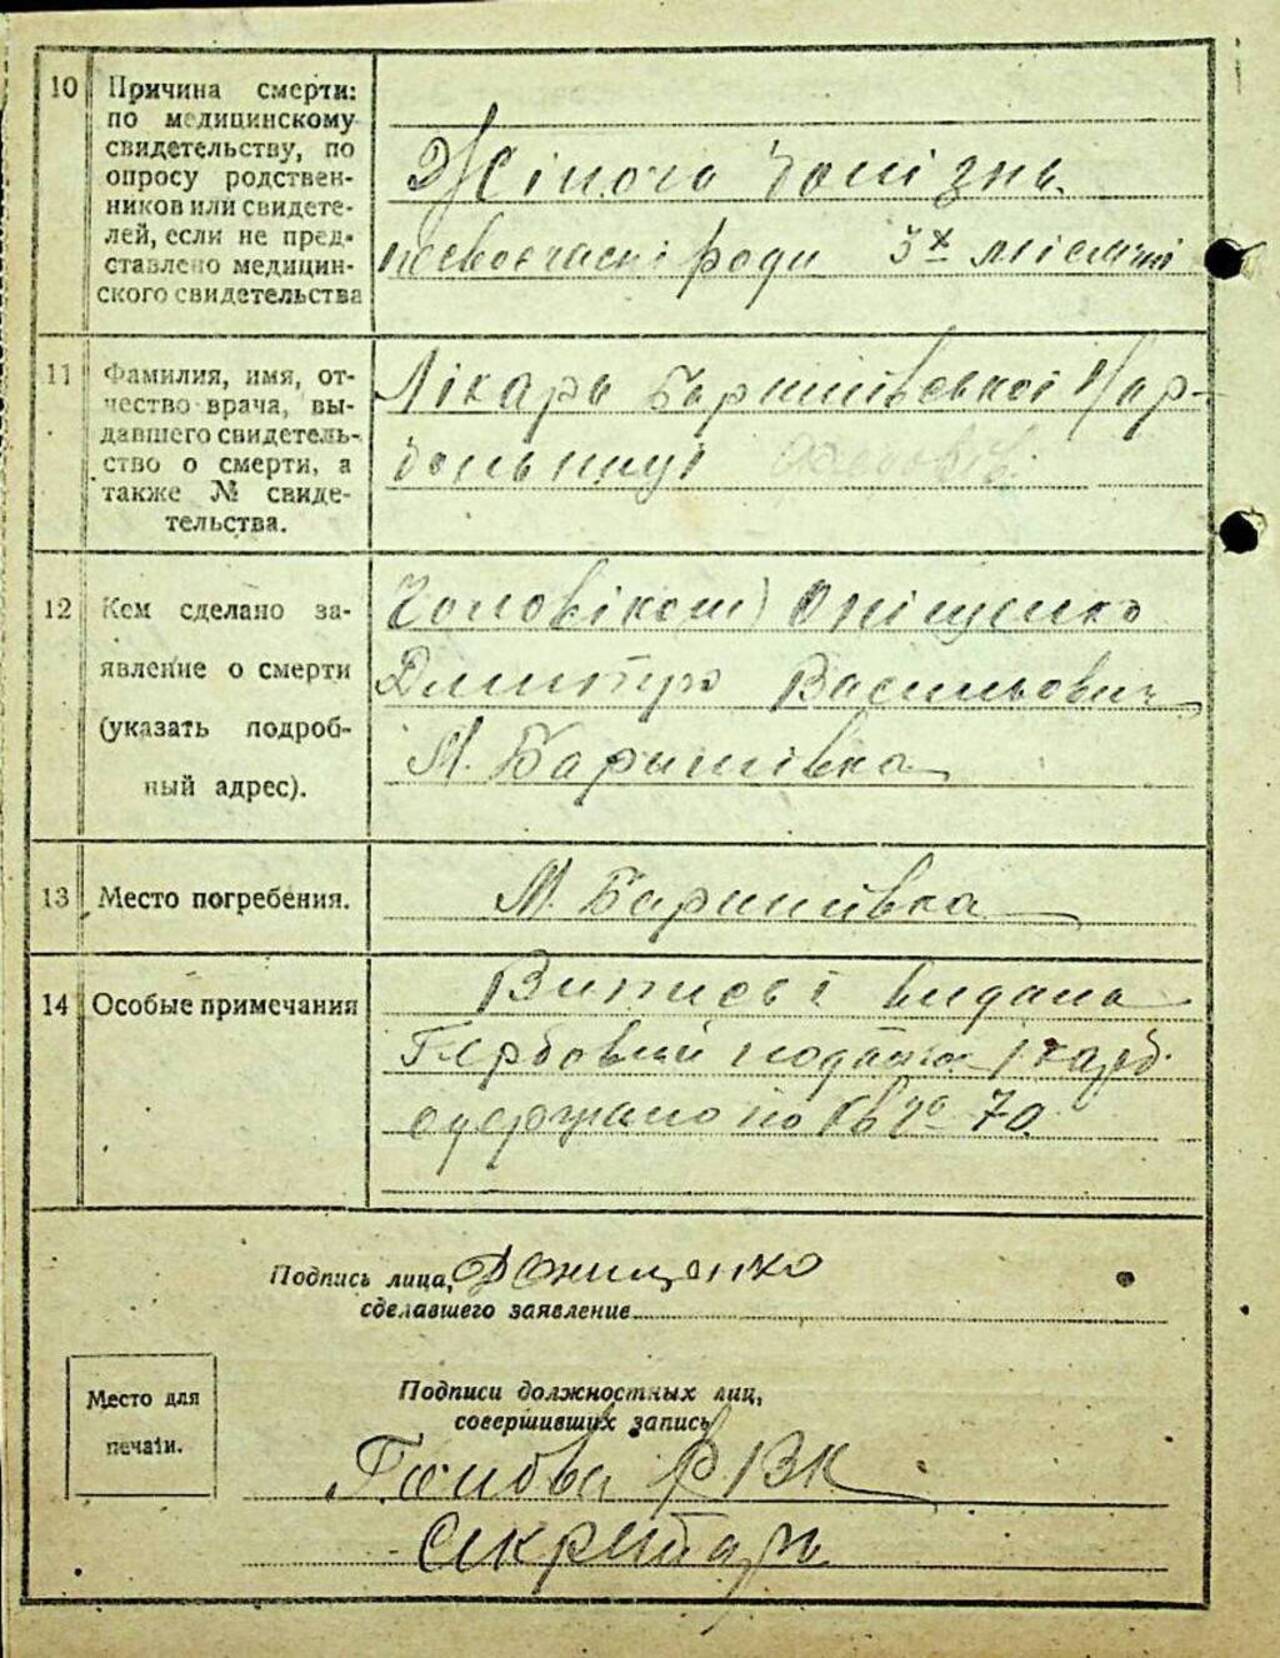 10 Причина смерти:
по медицинскому
свидетельству, по
опросу родствен-
ников или свидете-
лей, если не пред-
ставлено медицин-
ского свидетельства
Жіноча болізнь
несвоєчасні роди 3х місячні
11 Фамилия, имя, от-
чество врача, вы-
давшего свидетель-
ство о смерти, а
также № свиде-
тельства.
Лікарь Баришівської
больниці
12 Кем сделано за-
явление о смерти
(указать подроб-
ный адрес).
Чоловіком) Оніщенко
Дмитро Васильович
М. Баришівка
13 Место погребения.
М. Баришівка
14 Особые примечания
Виписьі видана
Гербовий 1 карб.
одержано по кв № 70.
Подпись лица, Д Онищенко
сделавшего заявление
Место для
печати.
Подписи должностных лиц,
совершивших запись
Голова РВК
Секретарь